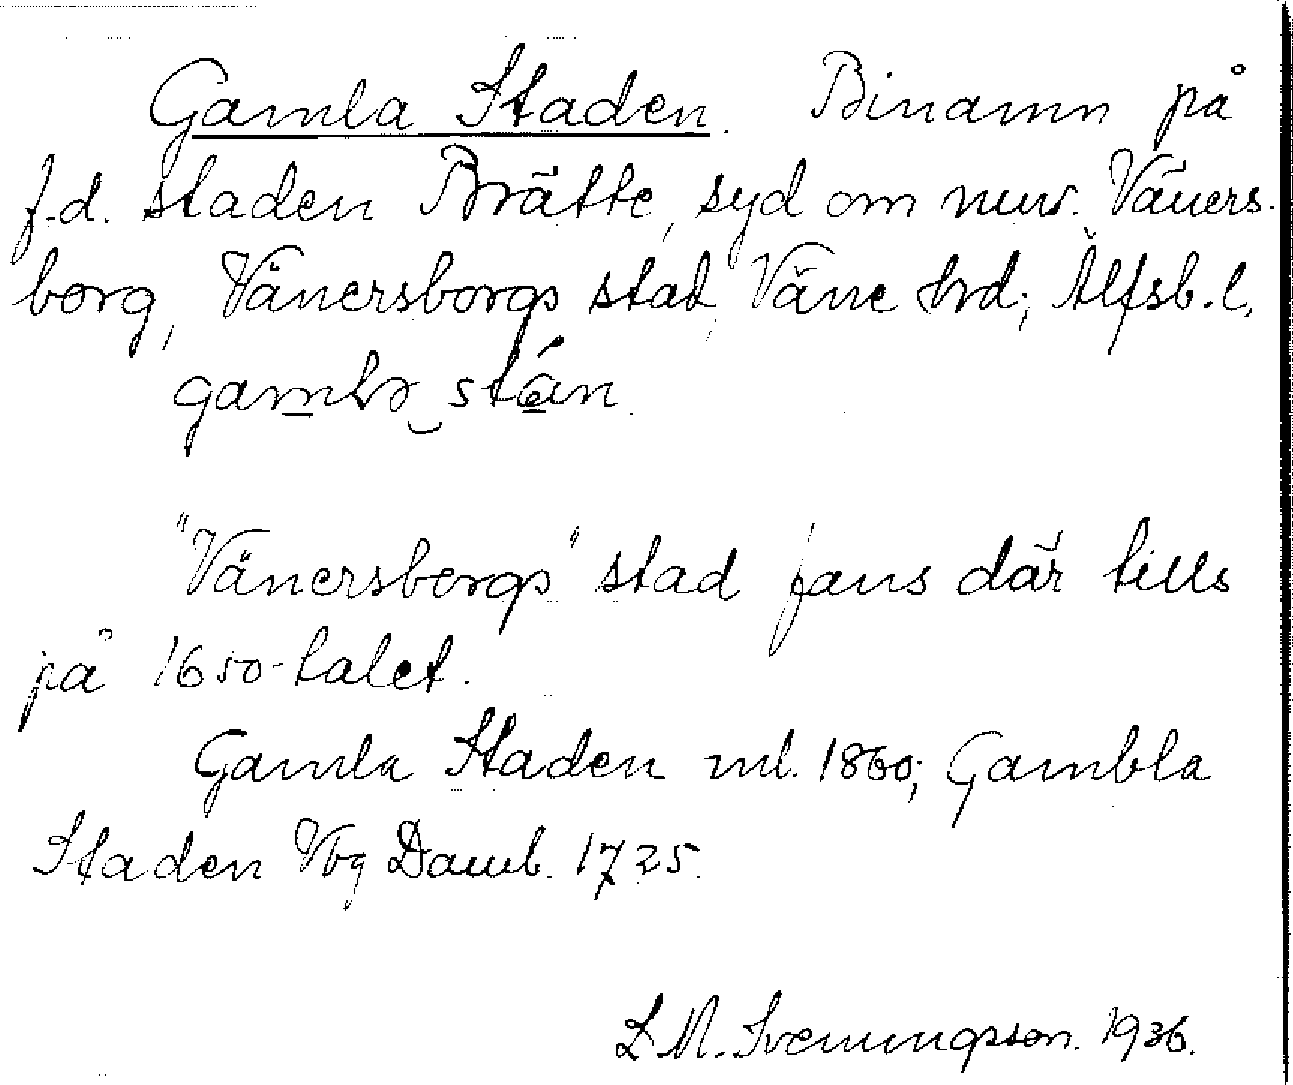 Gamla Staden. Binamn på
f.d. staden Brätte, syd om nuv. Väners-
borg, Vänersborgs stad, Väne hrd; Älfsb. l.
gamla stán.
"Vänersborgs" stad fans där tills
på 1650-talet.
Gamla Staden ml. 1860; Gambla
Staden Vbg Domb. 1725.
L M. Svenungsson. 1936.